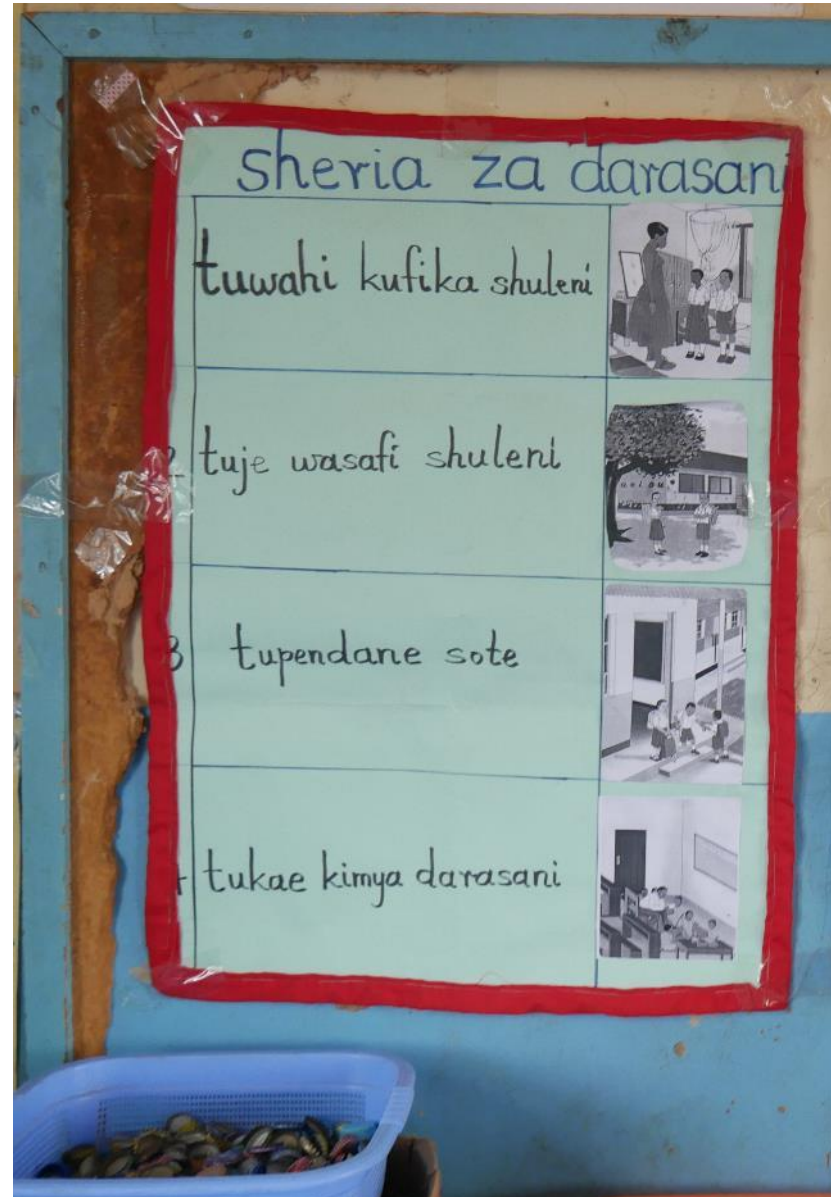 sheria za darasani
tuwahi kufika shuleni
2 tuje wasafi shuleni
3 tupendane sote
4 tukae kimya darasani